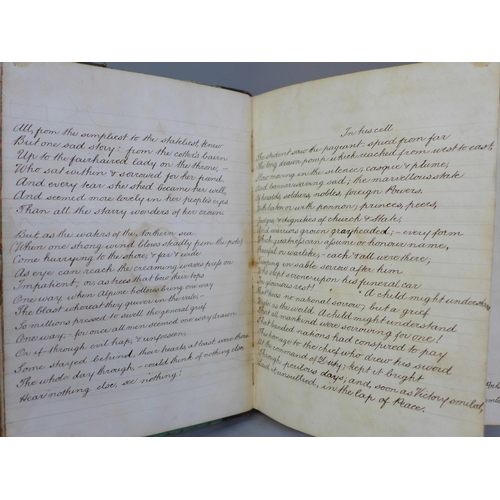 All, from the simpliest to the stateliest, knew
But one sad story: from the cotter's bairn
Up to the fairhaired lady on the throne, —
Who sat within & sorrowed for her friend
And every tear she shed became her well,
And seemed more lovely in her people's eyes
Than all the starry wonders of her crown
But as the waters of the Northern sea
(When one strong wind blows steadily from the pole)
Come hurrying to the shore; & far & wide
As eye can reach the creaming waves press on
Impatient; or as trees that bow their tops
One way, when Alpine hollows bring one way
The blast whereat they quiver in the vale, —
So millions pressed to swell the general grief
One way; — for once all men seemed one way drawn
Or if through evil hap & unforeseen
Some stayed behind, their hearts, at least were there
The whole day through, — could think of nothing else
Hear nothing else, see nothing!
In his cell
The student saw the pageant: spied from far
The long drawn pomp which reached from west to east,
Slow moving in the silence; casque & plume,
And banner waving sad; the marvellous state
Of heralds, soldiers, nobles, foreign Powers,
With baton or with pennon; princes, peers,
Judges, & dignities of church & state,
And warriors grown grayheaded; — every form
Which greatness can assume or honour name,
Peaceful or warlike, — each & all were there;
Trooping in sable sorrow after him
Who slept serene upon his funeral car
In glorious rest!
A child might understand
That 'twas no national sorrow, but a grief
Wide as the world. A child might understand
That all mankind were sorrowing for one!
That banded nations had conspired to pay
This homage to the chief who drew his sword
At the command of Duty; kept it bright
Through perilous days; and, soon as Victory smiled,
Laid it, unsullied, in the lap of Peace.